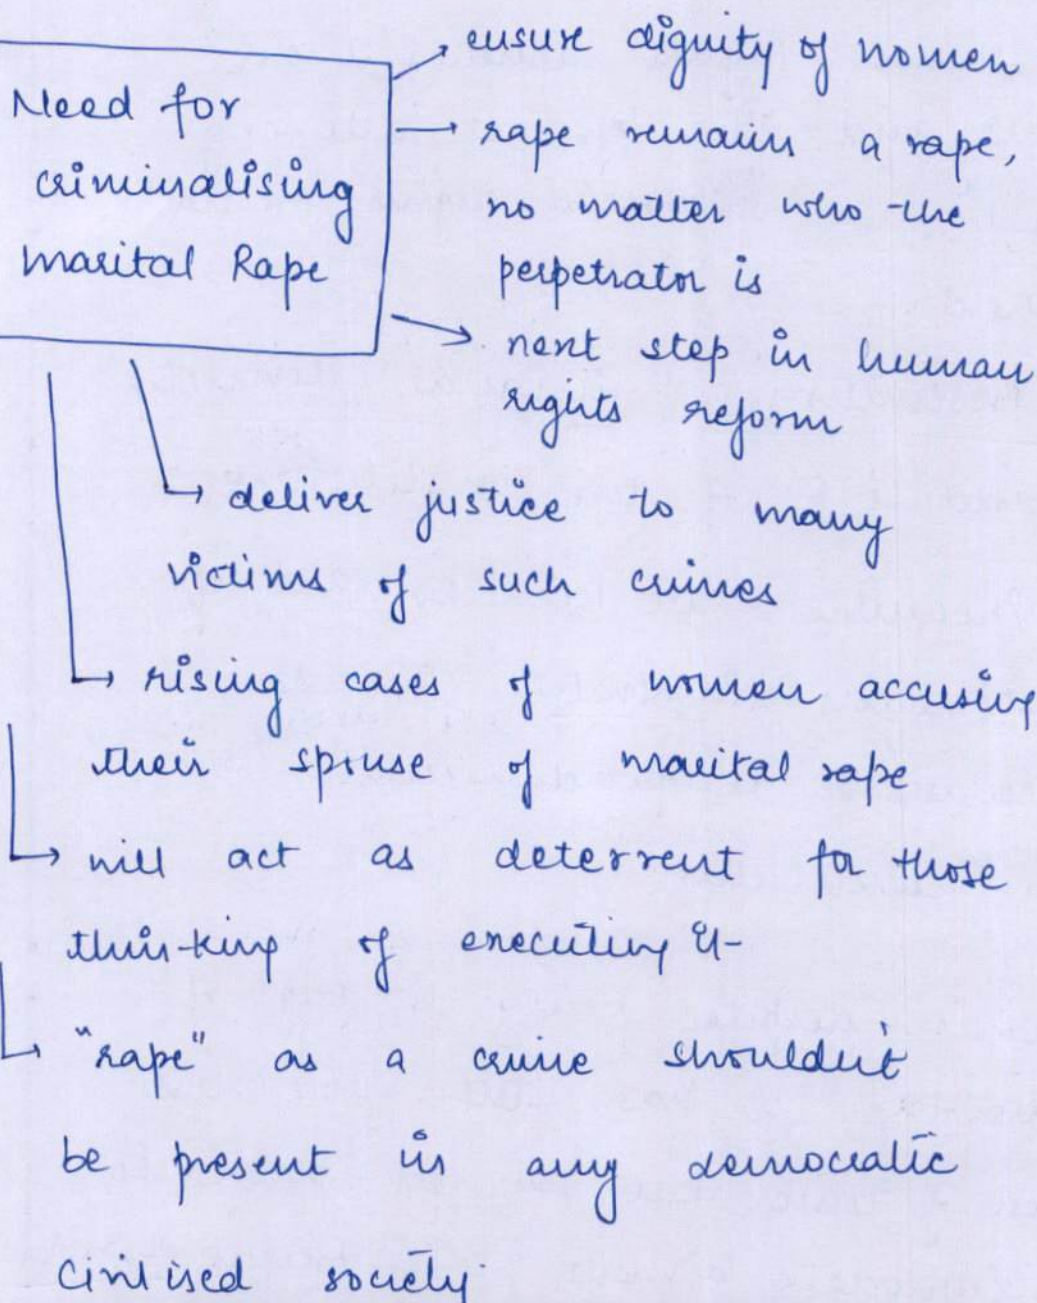 Need for
criminalising
Marital Rape
ensure dignity of women
rape remains a rape,
no matter who the
perpetrator is
next step in human
rights reform
deliver justice to many
victims of such crimes
rising cases of women accusing
their spouse of marital rape
will act as deterrent for those
thinking of executing it
"rape" as a crime shouldn't
be present in any democratic
civilised society.